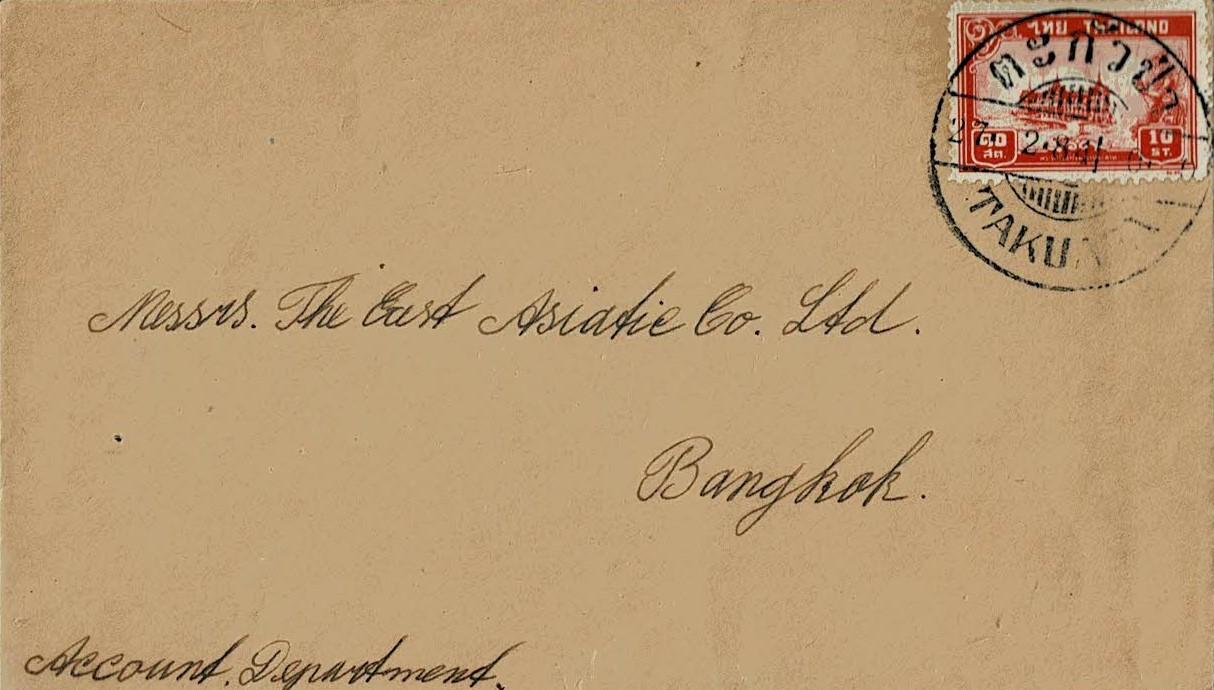 ไทย THAILAND
ตะกั่วป่า
27. 2.8.91
๑๐ 10
สต. ST.
TAKUA
Messrs. The East Asiatic Co. Ltd.
Bangkok.
Account. Department.